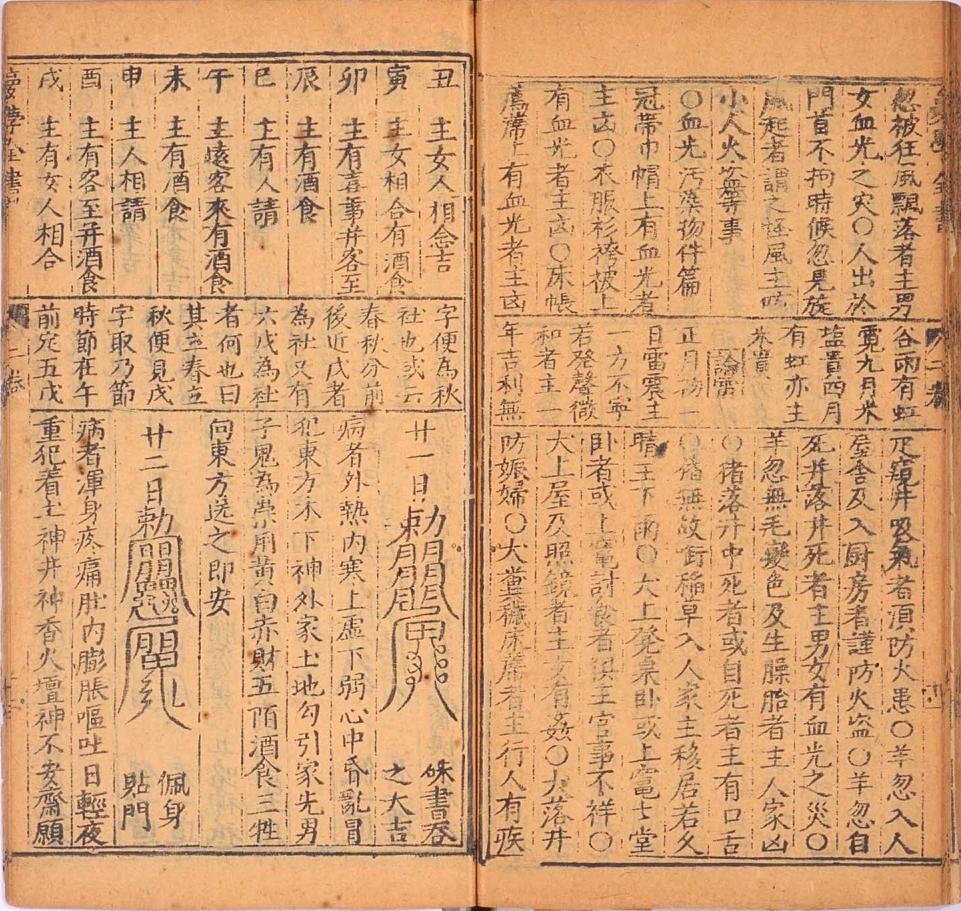 忽被狂風飄落者主男
女血光之灾〇人出於
門首不拘時候忽見旋
風起者謂之怪風主
小人火盜等事
〇血光汚染物件篇
冠帶巾帽上有血光者
主凶〇衣服衫袴被上
有血光者主凶〇床帳
薦席上有血光者主凶
谷雨有虹
霓九月米
塩貴四月
有虹亦主
米貴
論雷
正月初一
日雷震主
一方不寧
若發聲微
和者主一
年吉利無
疋窺井吸氣者須防火患〇羊忽入人
屋舍及入厨房者謹防火盜〇羊忽自
死井落井死者主男女有血光之災〇
羊忽無毛變色及生臊胎者主人家凶
〇猪落井中死者或自死者主有口舌
〇猪無故銜稻草入人家主移居若久
晴主下雨〇犬上凳桌卧或上竈士堂
卧者或上竈討食者俱主官事不祥〇
犬上屋及照鏡者主女有姦〇犬落井
防娠婦〇犬糞穢床席者主行人有疾
丑 主女人相念吉
寅 主女相合有酒食
卯 主有喜事并客至
辰 主有酒食
巳 主有人請
午 主遠客來有酒食
未 主有酒食
申 主人相請
酉 主有客至并酒食
戌 主有女人相合
字便為秋
社也或云
春秋分前
後近戊者
為社又有
六戊為社
者何也曰
其立春立
秋便見戊
字取乃節
時節在午
前定五戊
二卷
廿一日 勅 硃書吞之大吉
病者外熱内寒上虛下弱心中昏亂冒
犯東方木下神外家土地勾引家先男
子鬼為祟用黃白赤財五陌酒食三牲
向東方送之即安
廿二日 勅 佩身貼門
病者渾身疼痛肚内膨脹嘔吐日輕夜
重犯着土神井神香火壇神不安齋願